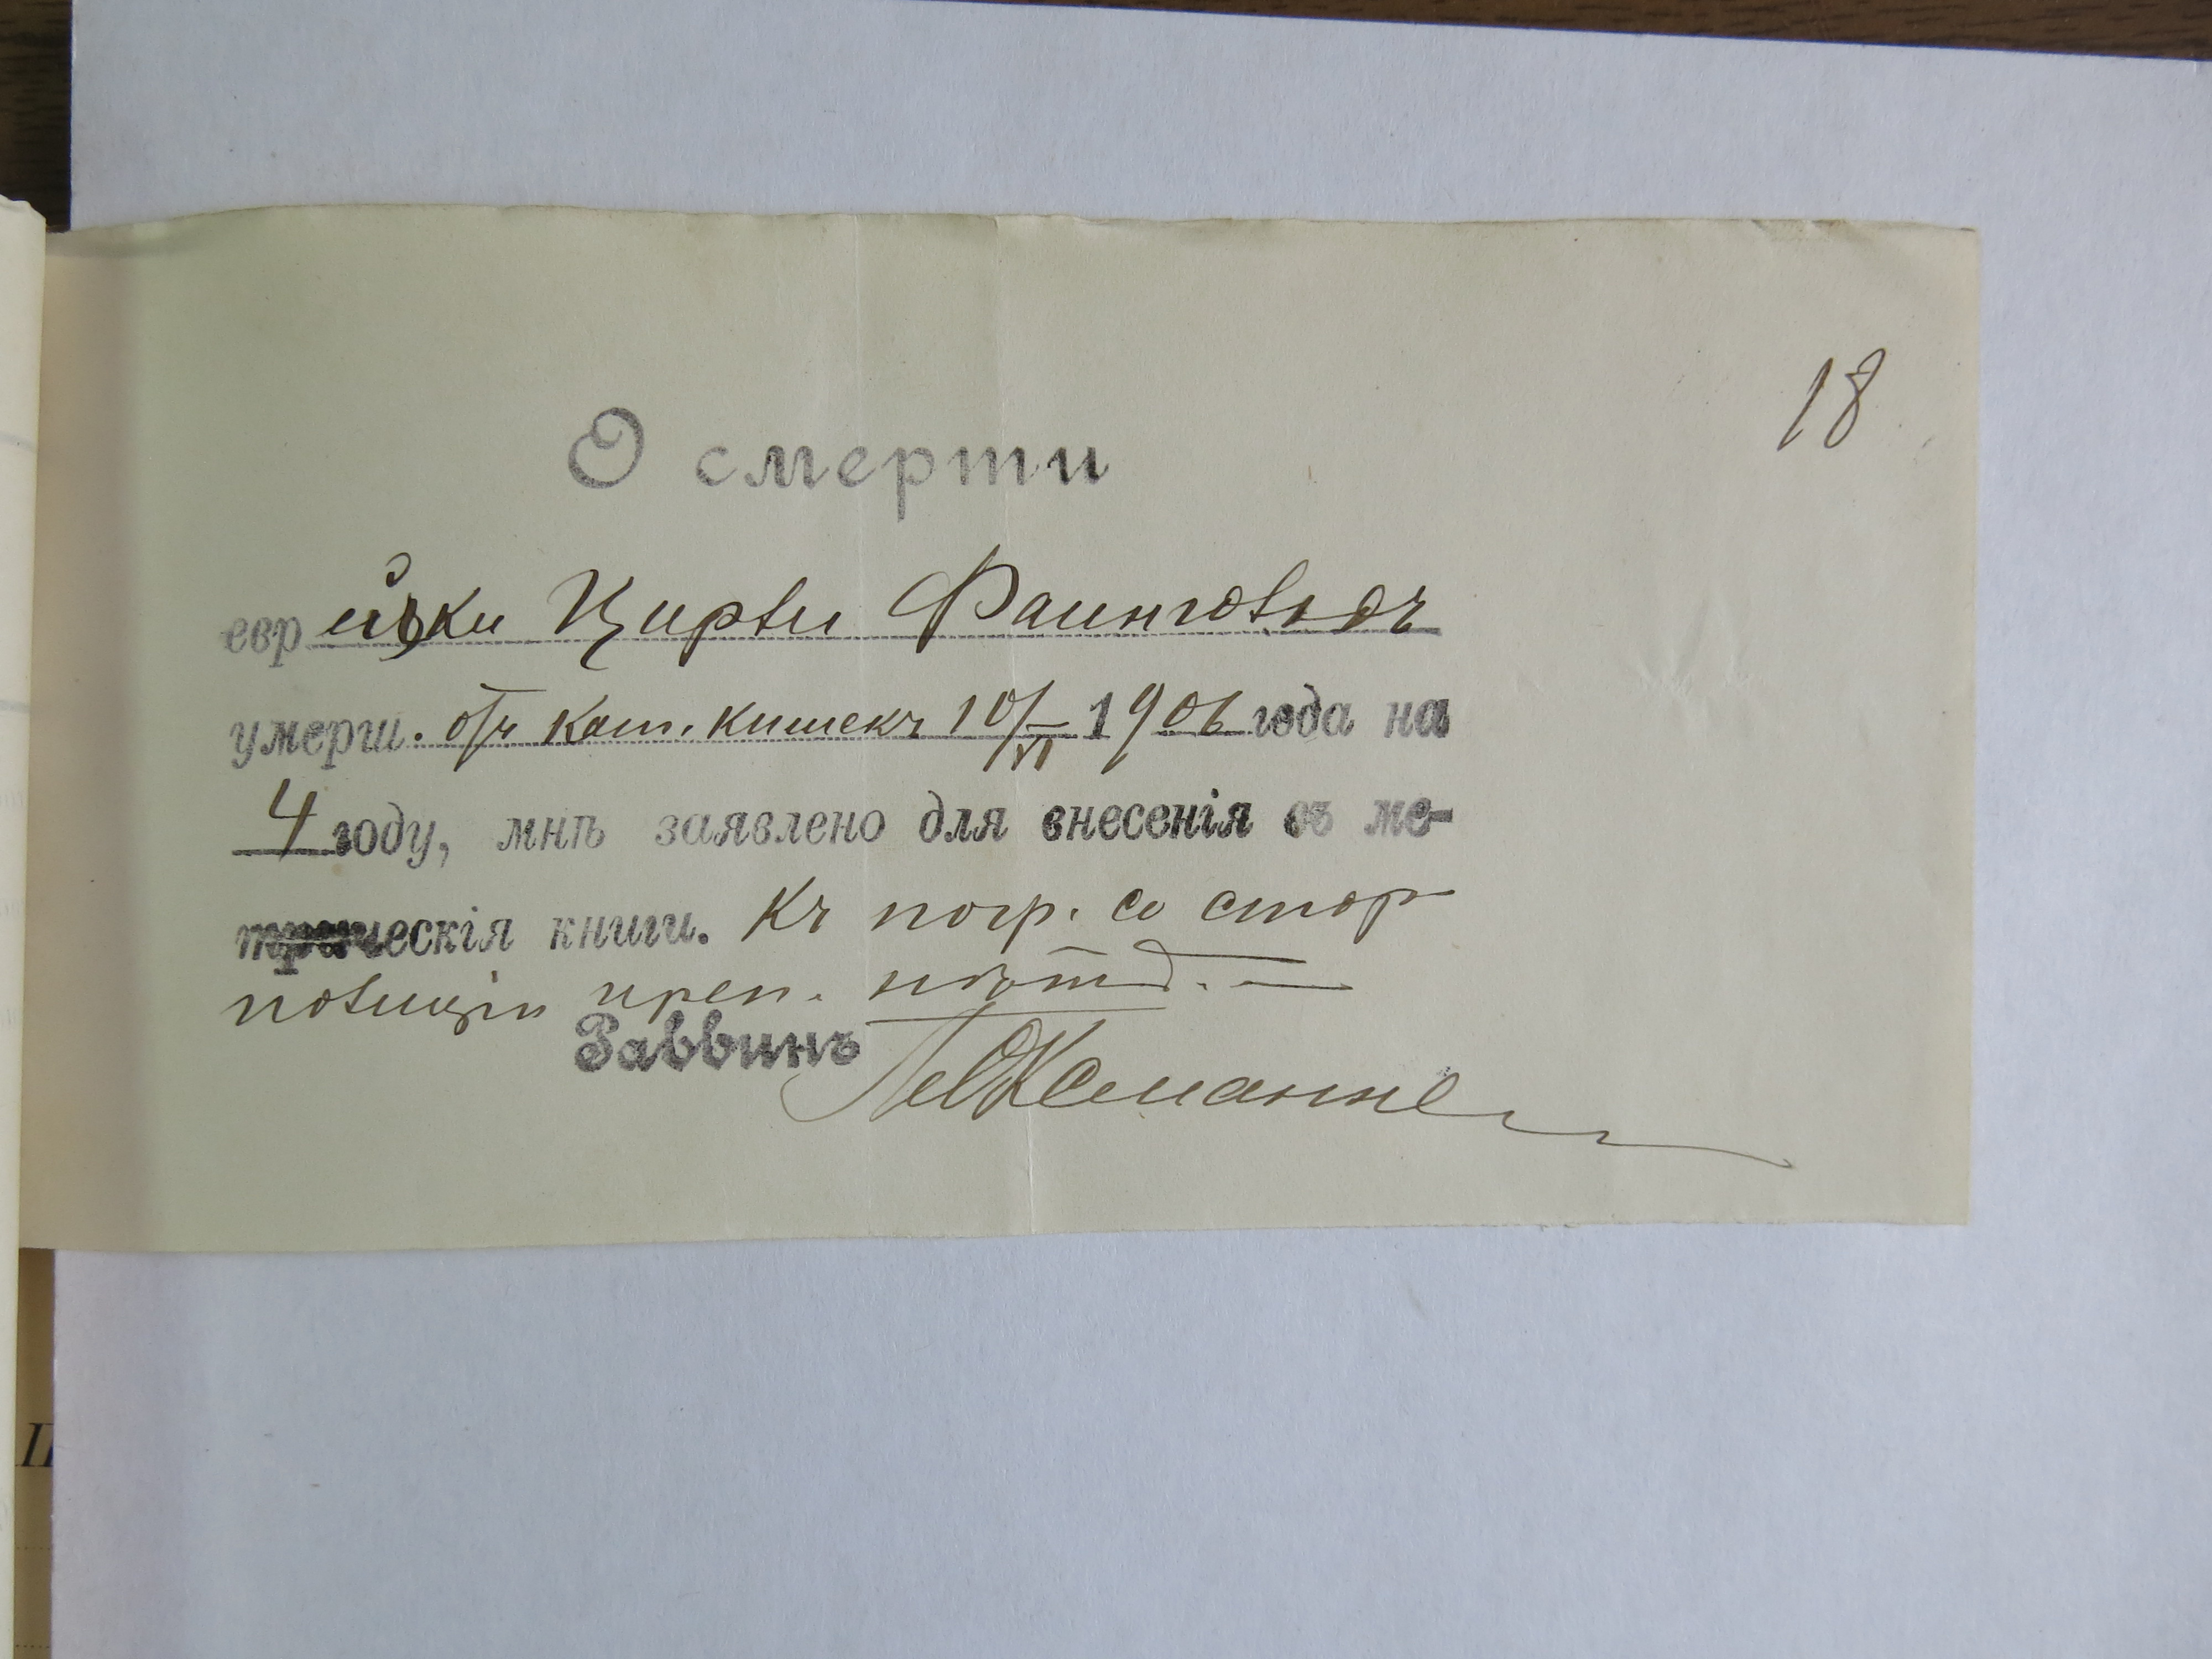 18
О смерти
еврейки Цирви
умерш. отъ кат. кишекъ 10/VI 1906 года на
4 году, мнѣ заявлено для внесенія въ ме-
трическія книги. Къ погр. со стор
полиціи преп. нѣтъ. —
Раввинъ